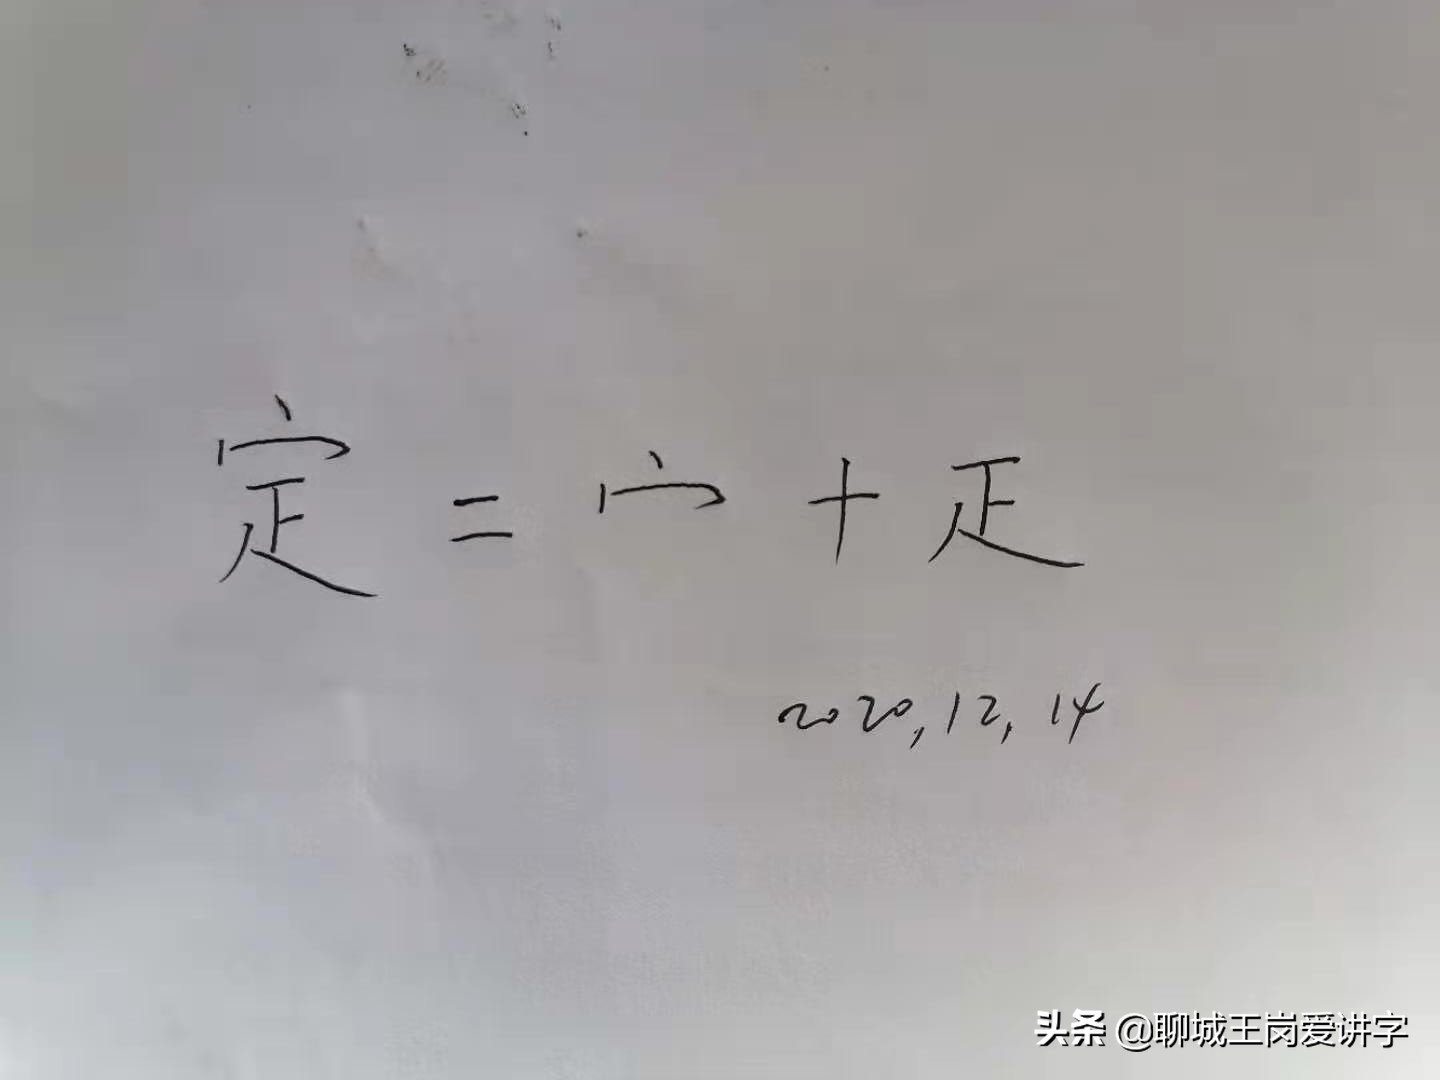 定=宀+𤴓
2020,12,14
头条 @聊城王岗爱讲字